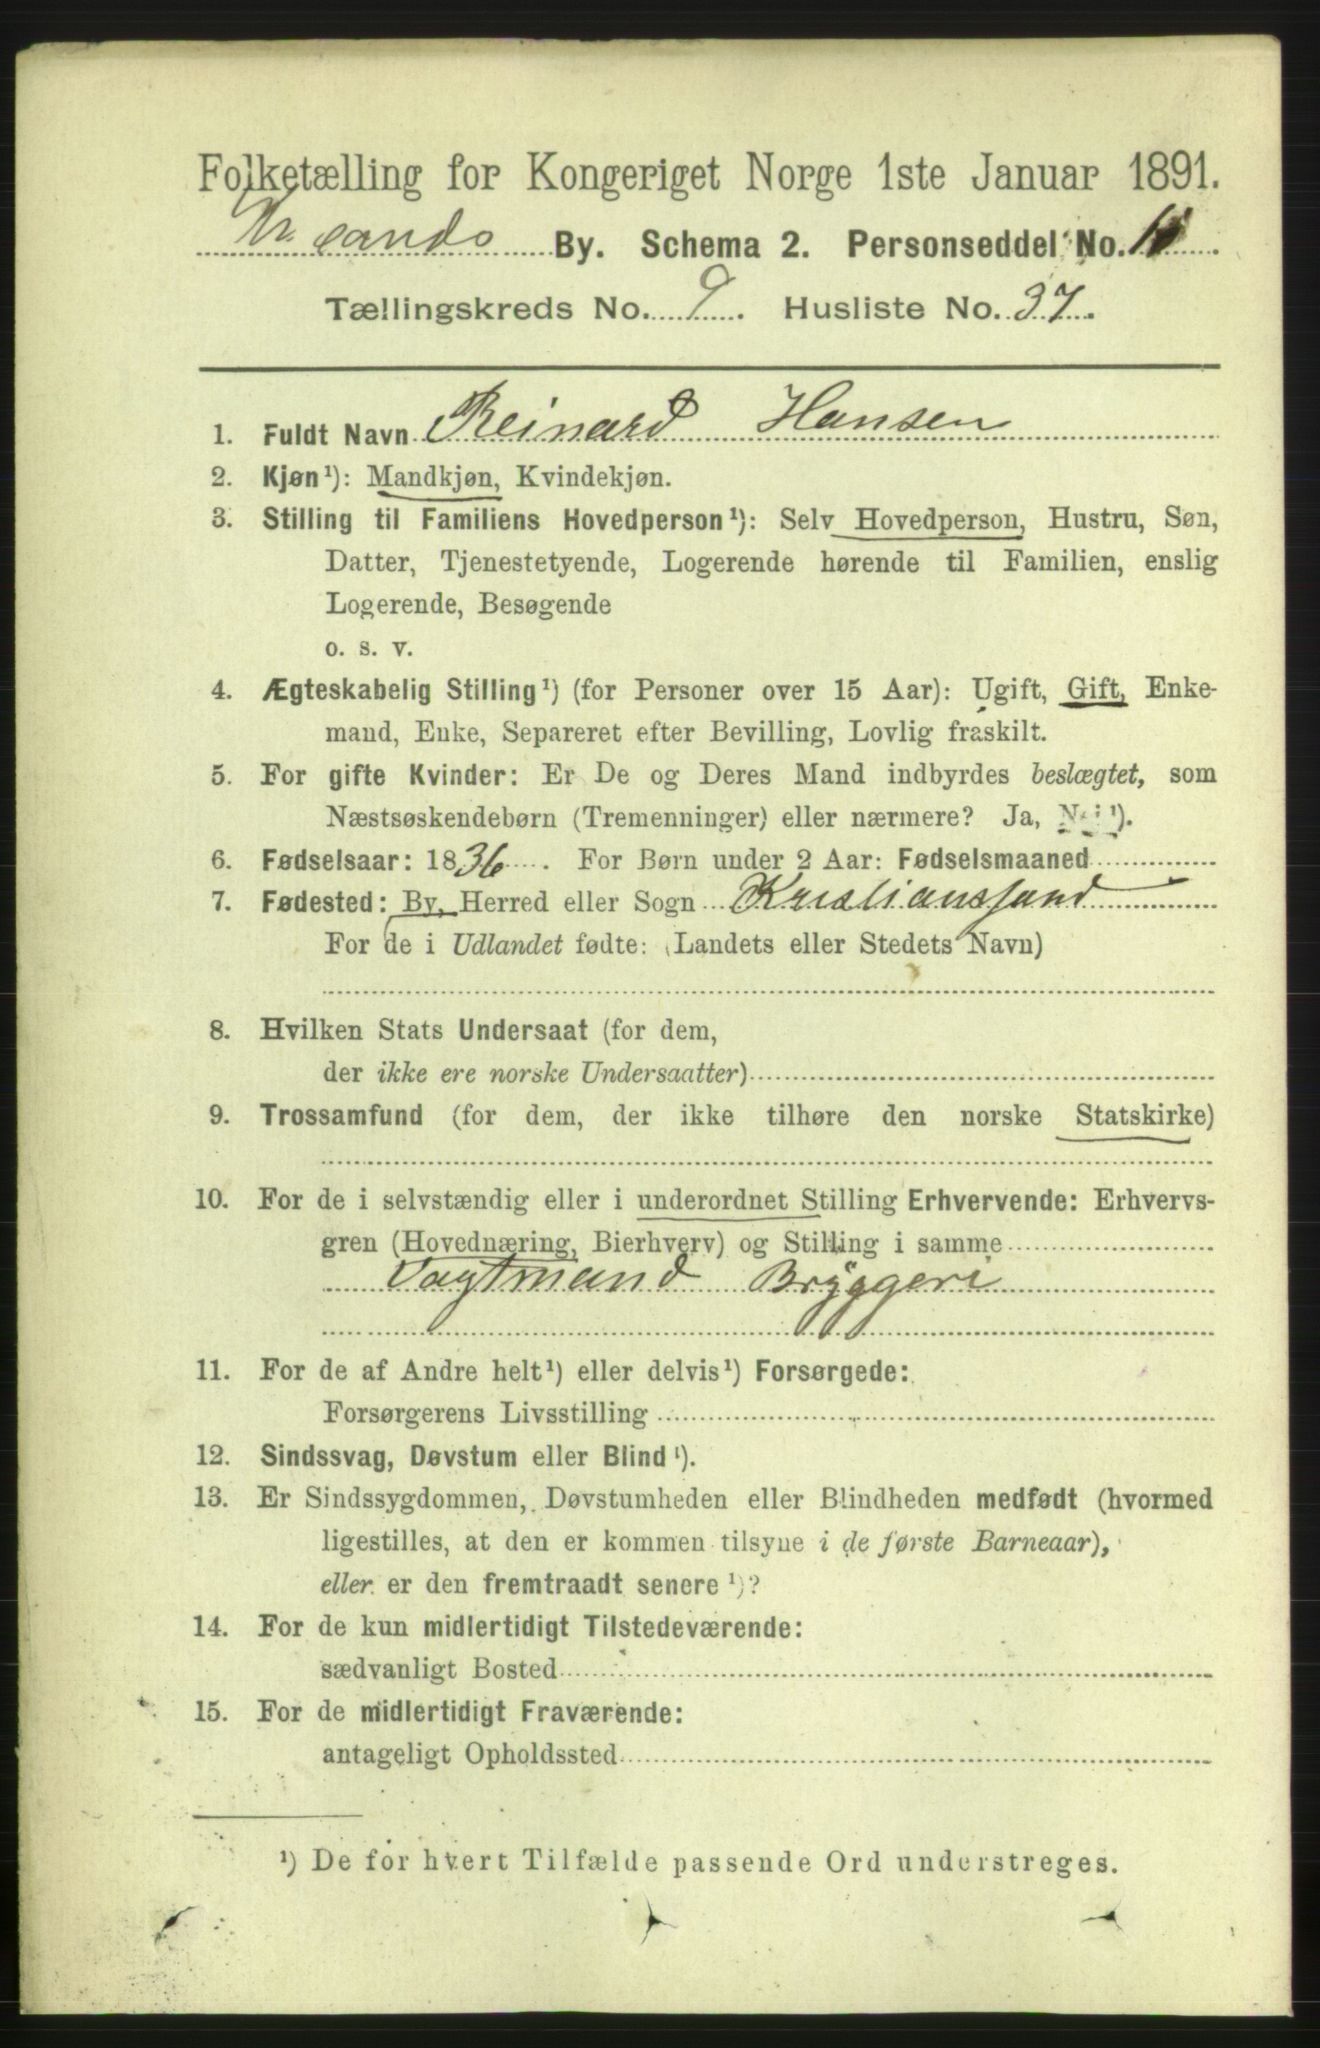 Folketælling for Kongeriget Norge 1ste Januar 1891.
Kr.sands By. Schema 2. Personseddel No.
Tællingskreds No. 9. Husliste No. 37.
1. Fuldt Navn Reinard Hansen
2. Kjøn¹): Mandkjøn, Kvindekjøn.
3. Stilling til Familiens Hovedperson¹): Selv Hovedperson, Hustru, Søn,
Datter, Tjenestetyende, Logerende hørende til Familien, enslig
Logerende, Besøgende
o. s. v.
4. Ægteskabelig Stilling¹) (for Personer over 15 Aar): Ugift, Gift, Enke-
mand, Enke, Separeret efter Bevilling, Lovlig fraskilt.
5. For gifte Kvinder: Er De og Deres Mand indbyrdes beslægtet, som
Næstsøskendebørn (Tremenninger) eller nærmere? Ja, Nei¹).
6. Fødselsaar: 1836. For Børn under 2 Aar: Fødselsmaaned
7. Fødested: By, Herred eller Sogn Kristianssand
For de i Udlandet fødte: (Landets eller Stedets Navn)
8. Hvilken Stats Undersaat (for dem,
der ikke ere norske Undersaatter)
9. Trossamfund (for dem, der ikke tilhøre den norske Statskirke)
10. For de i selvstændig eller i underordnet Stilling Erhvervende: Erhvervs-
gren (Hovednæring, Bierhverv) og Stilling i samme
Vagtmand Bryggeri
11. For de af Andre helt¹) eller delvis¹) Forsørgede:
Forsørgerens Livsstilling
12. Sindssvag, Døvstum eller Blind¹).
13. Er Sindssygdommen, Døvstumheden eller Blindheden medfødt (hvormed
ligestilles, at den er kommen tilsyne i de første Barneaar),
eller er den fremtraadt senere¹)?
14. For de kun midlertidigt Tilstedeværende:
sædvanligt Bosted
15. For de midlertidigt Fraværende:
antageligt Opholdssted
¹) De for hvert Tilfælde passende Ord understreges.